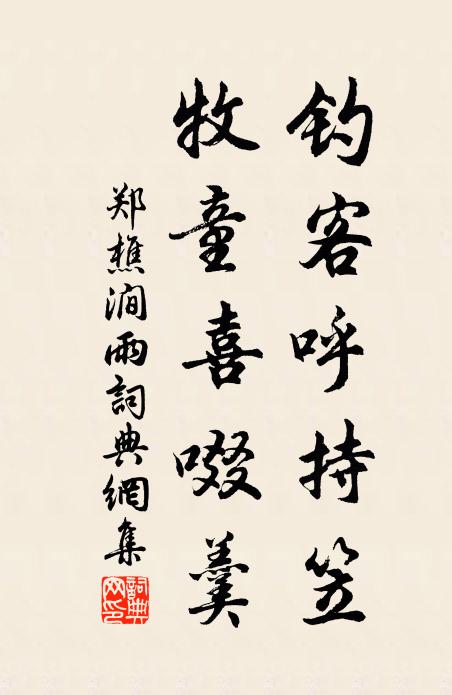 钓客呼持笠
牧童喜啜羹
郑樵涧雨詞典網集
詞典
网印